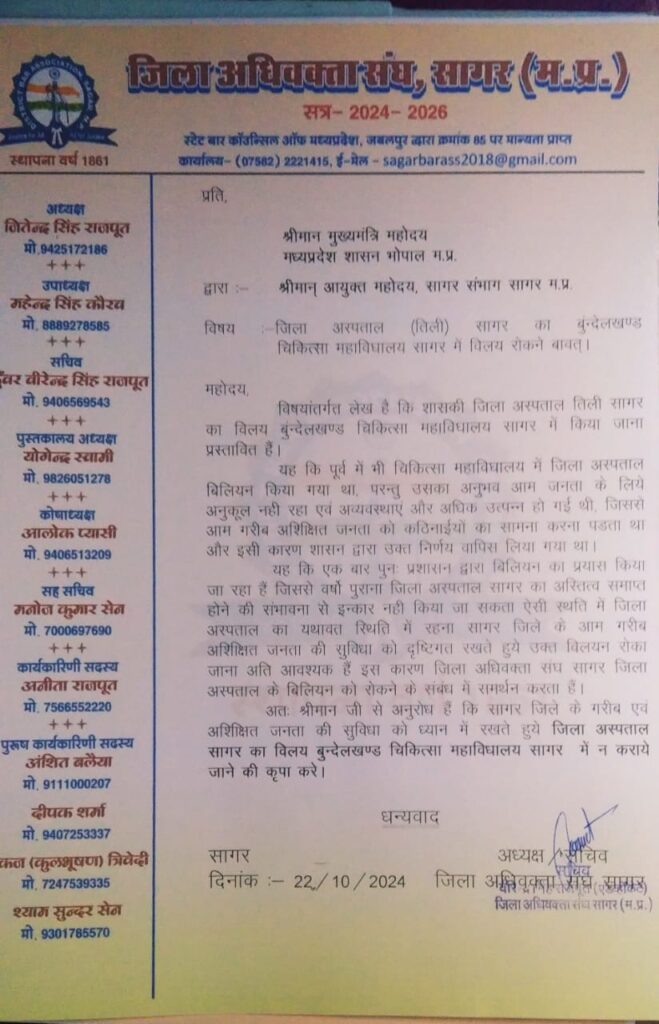 DISTRICT BAR ASSOCIATION, SAGAR
जिला अधिवक्ता संघ, सागर (म.प्र.)
सत्र- 2024- 2026
स्टेट बार कॉउन्सिल ऑफ मध्यप्रदेश, जबलपुर द्वारा क्रमांक 85 पर मान्यता प्राप्त
स्थापना वर्ष 1861
कार्यालय- (07582) 2221415, ई-मेल - sagarbarass2018@gmail.com
अध्यक्ष
जितेन्द्र सिंह राजपूत
मो.9425172186
+++
उपाध्यक्ष
महेन्द्र सिंह कौरव
मो. 8889278585
+++
सचिव
वीरेन्द्र सिंह राजपूत
मो. 9406569543
+++
पुस्तकालय अध्यक्ष
योगेन्द्र स्वामी
मो. 9826051278
+++
कोषाध्यक्ष
आलोक प्यासी
मो. 9406513209
+++
सह सचिव
मनोज कुमार सेन
मो. 7000697690
+++
कार्यकारिणी सदस्य
अनीता राजपूत
मो. 7566552220
+++
पुरूष कार्यकारिणी सदस्य
अंशित बलैया
मो. 9111000207
दीपक शर्मा
मो. 9407253337
(कुलभूषण) त्रिवेदी
मो. 7247539335
श्याम सुन्दर सेन
मो. 9301785570
प्रति,
श्रीमान मुख्यमंत्रि महोदय
मध्यप्रदेश शासन भोपाल म.प्र.
द्वारा :- श्रीमान् आयुक्त महोदय, सागर संभाग सागर म.प्र.
विषय :-जिला अस्पताल (तिली) सागर का बुंन्देलखण्ड
चिकित्सा महाविघालय सागर में विलय रोकने बावत्।
महोदय,
विषयांतर्गत्त लेख है कि शासकी जिला अस्पताल तिली सागर
का विलय बुंन्देलखण्ड चिकित्सा महाविघालय सागर में किया जाना
प्रस्तावित हैं।
यह कि पूर्व में भी चिकित्सा महाविघालय में जिला अस्पताल
बिलियन किया गया था, परन्तु उसका अनुभव आम जनता के लिये
अनुकूल नही रहा एवं अव्यवस्थाएं और अधिक उत्पन्न हो गई थी, जिससे
आम गरीब अशिक्षित जनता को कठिनाईयों का सामना करना पडता था
और इसी कारण शासन द्वारा उक्त निर्णय वापिस लिया गया था।
यह कि एक बार पुनः प्रशासन द्वारा बिलियन का प्रयास किया
जा रहा हैं जिससे वर्षो पुराना जिला अस्पताल सागर का अस्तित्व समाप्त
होने की संभावना से इन्कार नही किया जा सकता ऐसी स्थति में जिला
अस्पताल का यथावत स्थिति में रहना सागर जिले के आम गरीब
अशिक्षित जनता की सुविधा को दृष्टिगत रखते हुये उक्त विलयन रोका
जाना अति आवश्यक हैं इस कारण जिला अधिवक्ता संघ सागर जिला
अस्पताल के बिलियन को रोकने के संबंध में समर्थन करता हैं।
अतः श्रीमान जी से अनुरोध हैं कि सागर जिले के गरीब एवं
अशिक्षित जनता की सुविधा को ध्यान में रखते हुये जिला अस्पताल
सागर का विलय बुंन्देलखण्ड चिकित्सा महाविघालय सागर में न कराये
जाने की कृपा करे।
धन्यवाद
सागर
अध्यक्ष / सचिव
दिनांक :- 22/10/2024
जिला अधिवक्ता संघ सागर
सचिव
जिला अधिवक्ता संघ सागर (म.प्र.)